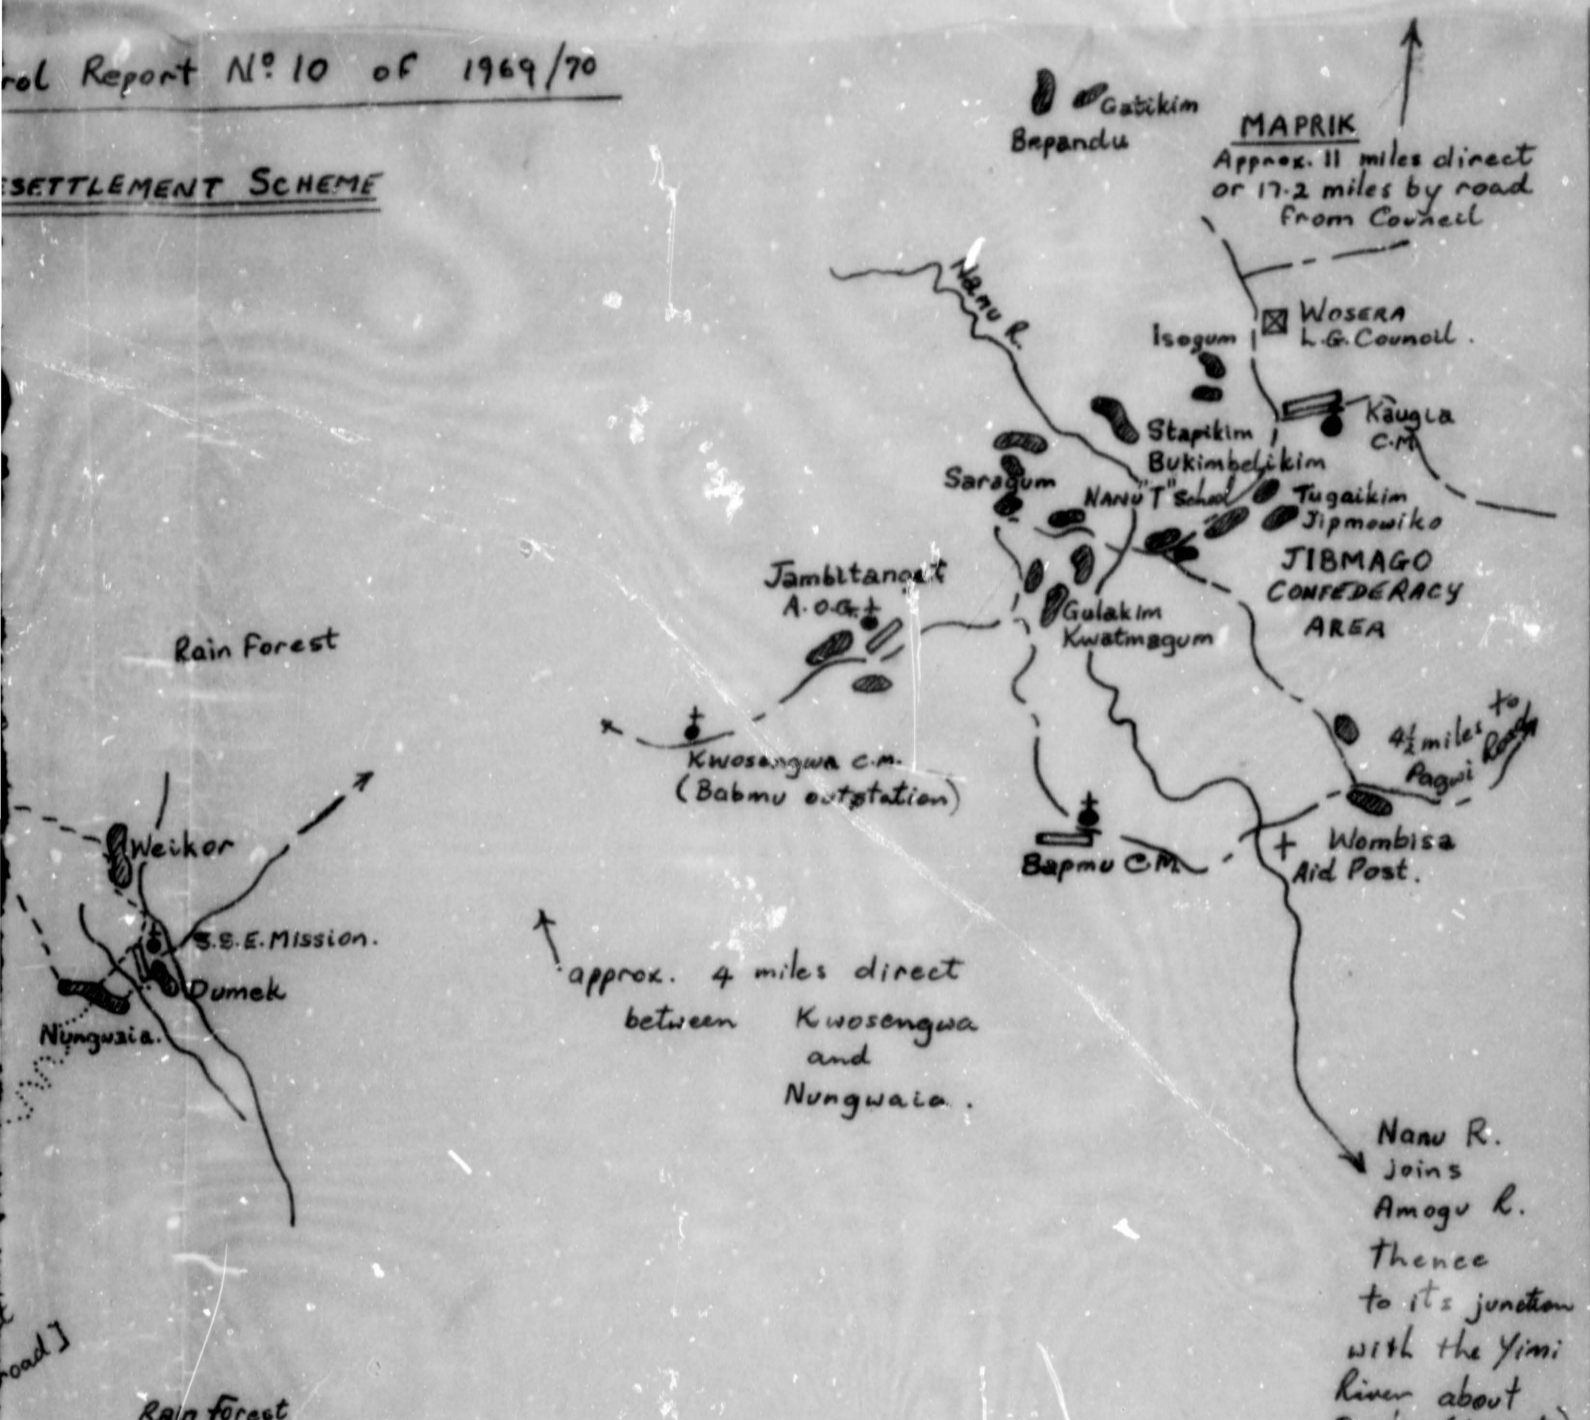 rol Report Nº 10 of 1969/70
ESETTLEMENT SCHEME
Gatikim
Bepandu
MAPRIK
Approx. 11 miles direct
or 17.2 miles by road
from Council
Nanu R.
WOSERA
L.G. Council.
Isogum
Kaugia
C.M.
Stapikim
Bukimbelikim
Saragum
NANU "T" School
Tugaikim
Jipmowiko
JIBMAGO
CONFEDERACY
AREA
Jambitanget
A.O.G.
Gulakim
Kwatmagum
Rain Forest
4½ miles to
Pagwi Road
Kwosengwa C.M.
(Babmu outstation)
Weikor
Bapmu C.M.
Wombisa
Aid Post.
S.S.E. Mission.
Dumek
Nungwaia.
approx. 4 miles direct
between Kwosengwa
and
Nungwaia.
Nanu R.
joins
Amogu R.
thence
to its junction
with the Yimi
River about
road]
Rain Forest